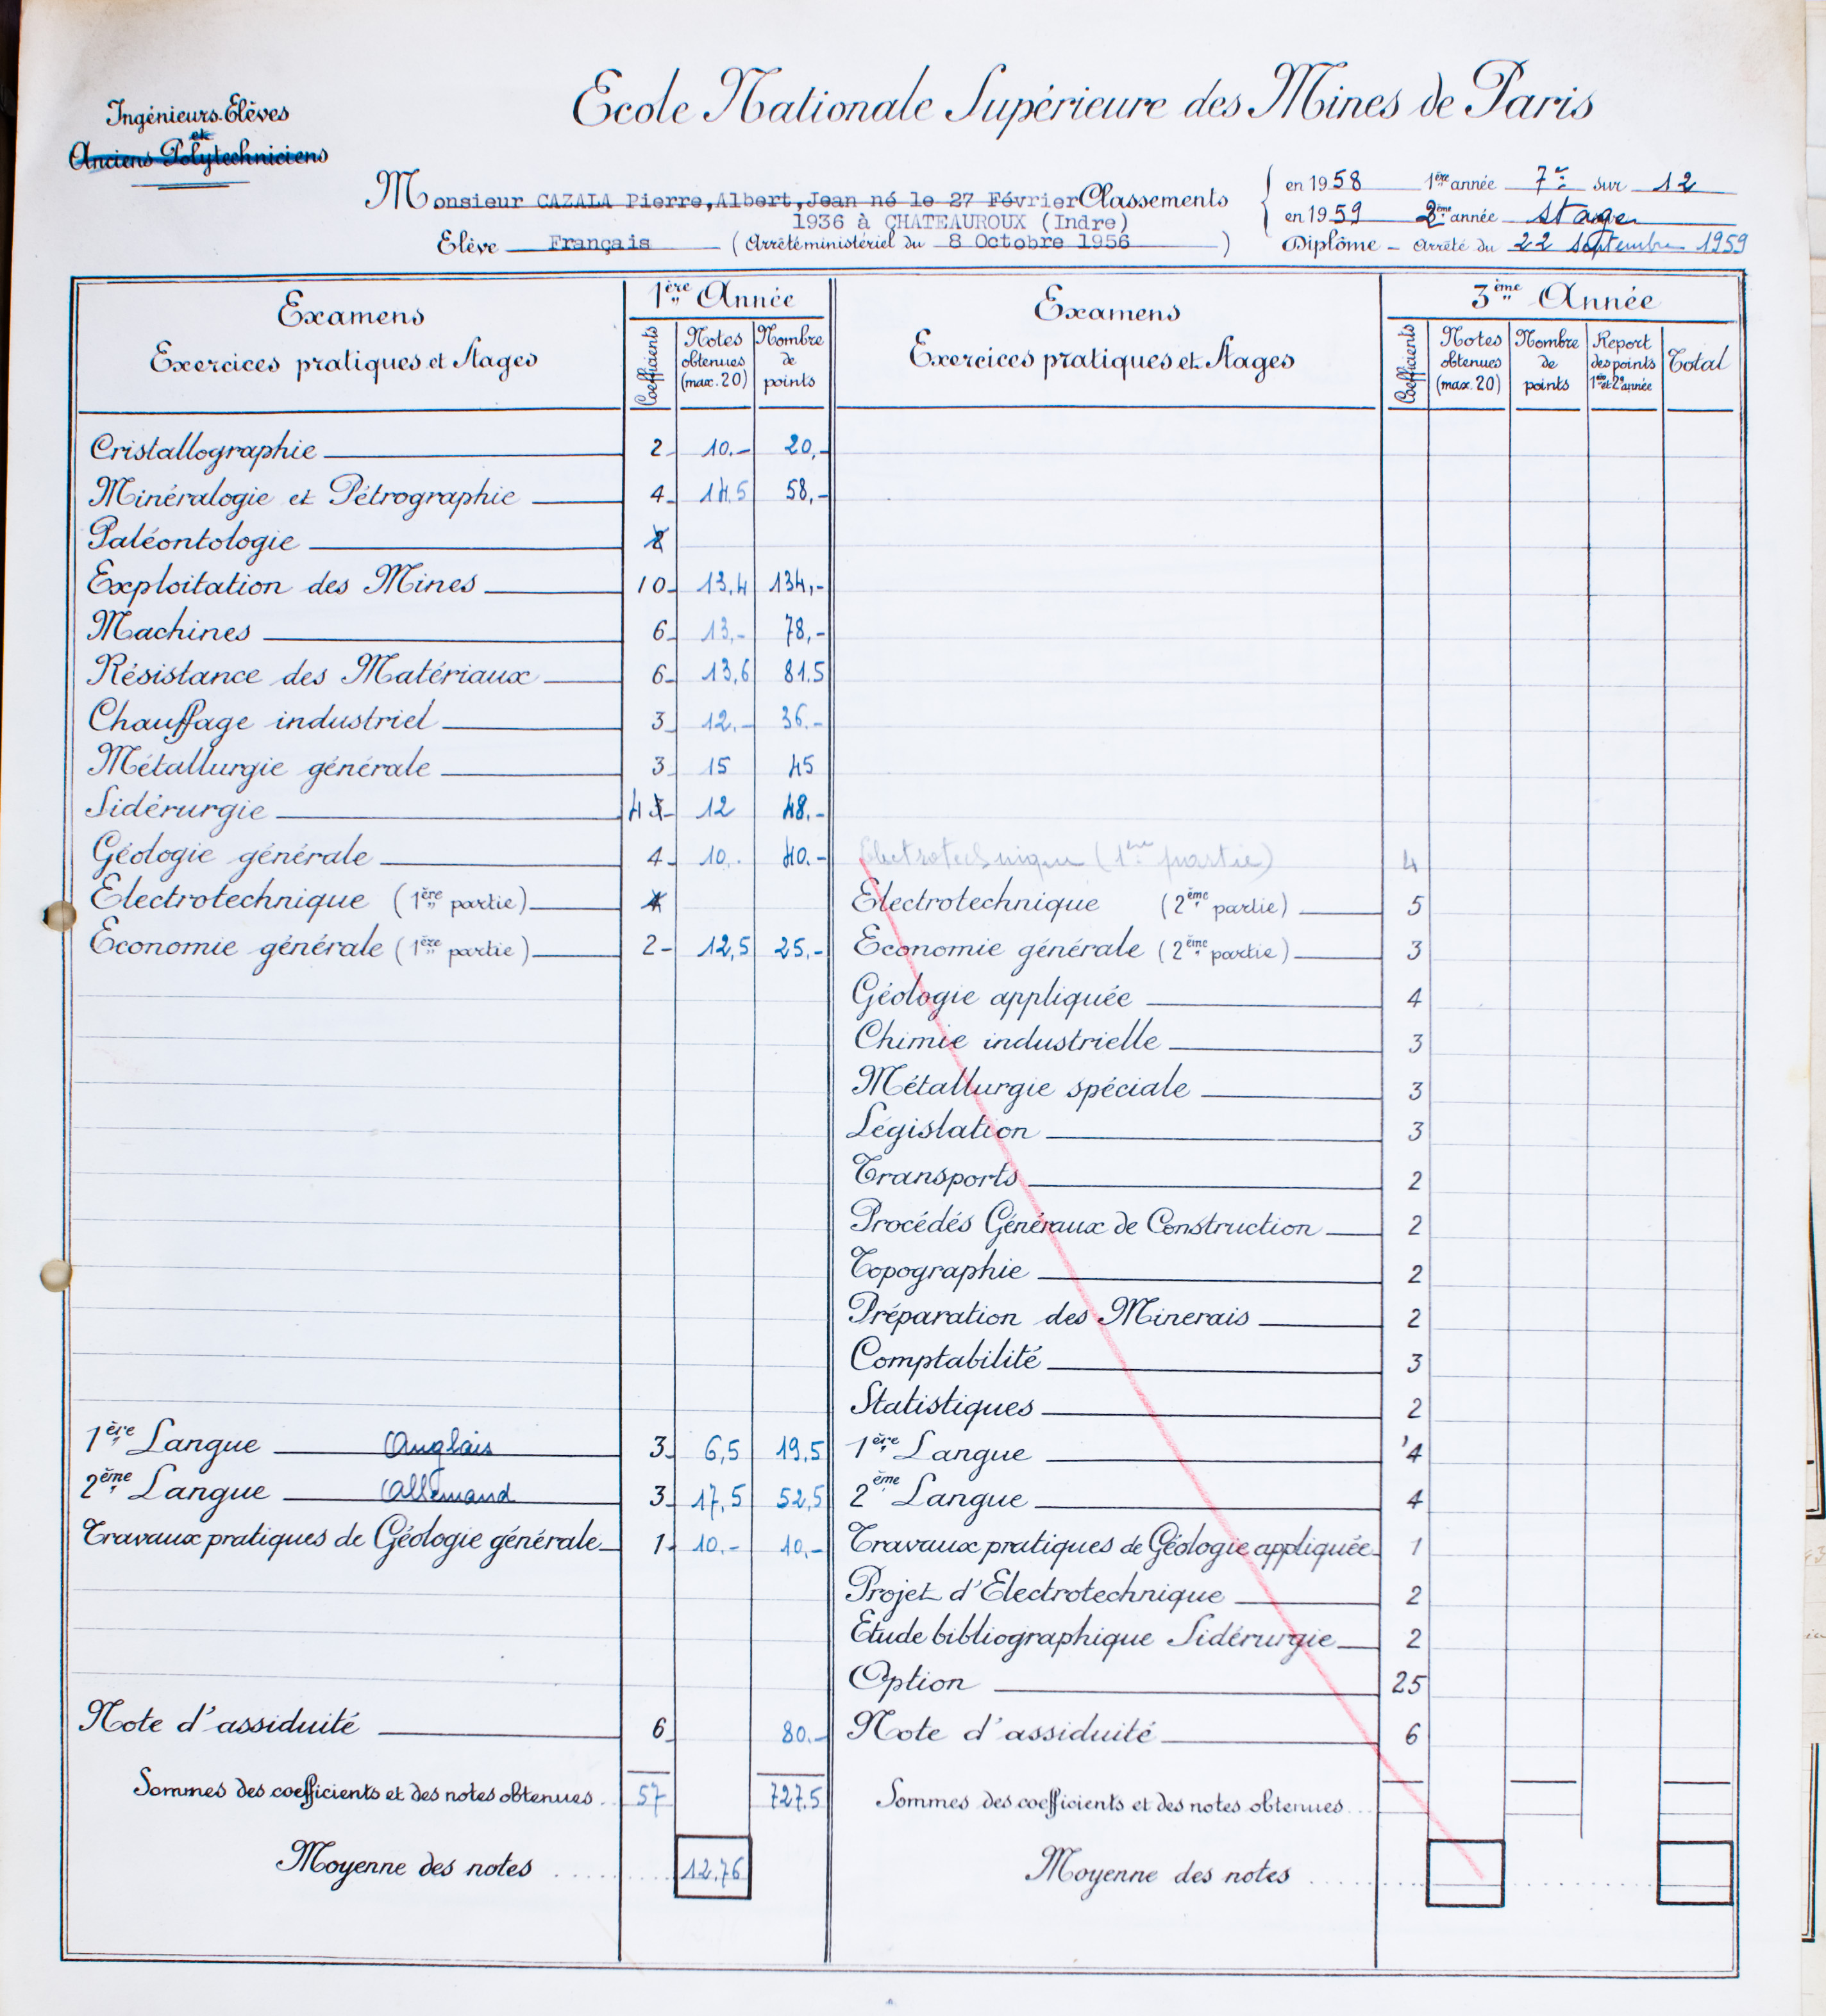 Ecole Nationale Supérieure des Mines de Paris
Ingénieurs-Elèves
et
Anciens Polytechniciens
Monsieur CAZALA Pierre, Albert, Jean né le 27 Février
1936 à CHATEAUROUX (Indre)
Elève Français (Arrêté ministériel du 8 Octobre 1956)
Classements
en 1958 1ère année 7e sur 12
en 1959 2ème année stage
Diplôme - Arrêté du 22 septembre 1959
Examens
Exercices pratiques et Stages
1ère Année
Coefficients
Notes obtenues (max. 20)
Nombre de points
Cristallographie 2 10.- 20,-
Minéralogie et Pétrographie 4 14,5 58,-
Paléontologie 2
Exploitation des Mines 10 13,4 134,-
Machines 6 13,- 78,-
Résistance des Matériaux 6 13,6 81.5
Chauffage industriel 3 12.- 36.-
Métallurgie générale 3 15 45
Sidérurgie 4 3 12 48.-
Géologie générale 4 10. 40.-
Electrotechnique (1ère partie) 4
Economie générale (1ère partie) 2 12,5 25.-
1ère Langue Anglais 3 6,5 19,5
2ème Langue Allemand 3 17,5 52,5
Travaux pratiques de Géologie générale 1 10.- 10,-
Note d'assiduité 6 80.-
Sommes des coefficients et des notes obtenues. 57 727.5
Moyenne des notes ..... 12,76
Examens
Exercices pratiques et Stages
3ème Année
Coefficients
Notes obtenues (max. 20)
Nombre de points
Report des points 1ère et 2e année
Total
Electrotechnique (1ère partie) 4
Electrotechnique (2ème partie) 5
Economie générale (2ème partie) 3
Géologie appliquée 4
Chimie industrielle 3
Métallurgie spéciale 3
Législation 3
Transports 2
Procédés Généraux de Construction 2
Topographie 2
Préparation des Minerais 2
Comptabilité 3
Statistiques 2
1ère Langue 4
2ème Langue 4
Travaux pratiques de Géologie appliquée 1
Projet d'Electrotechnique 2
Etude bibliographique Sidérurgie 2
Option 25
Note d'assiduité 6
Sommes des coefficients et des notes obtenues...
Moyenne des notes .....